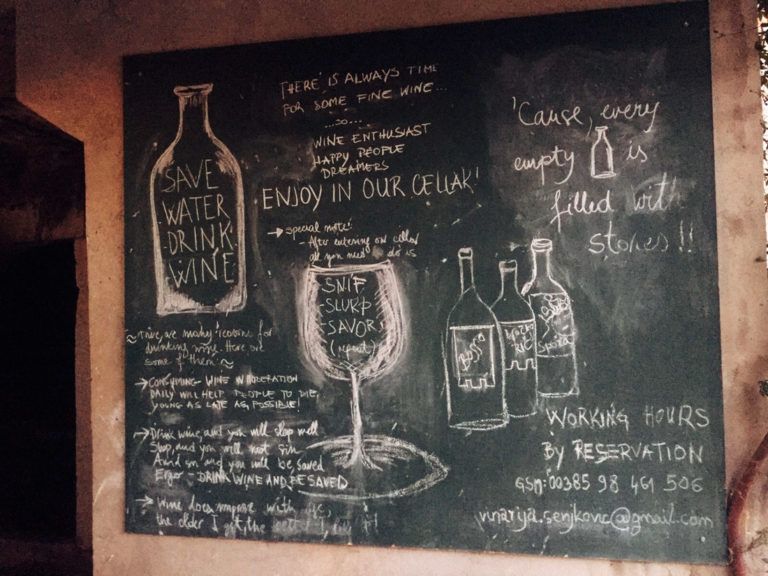 SAVE
WATER
DRINK
WINE
THERE IS ALWAYS TIME
FOR SOME FINE WINE...
...so...
WINE ENTHUSIAST
HAPPY PEOPLE
DREAMERS
ENJOY IN OUR CELLAR!
→ special note:
- After entering our cellar
all you need do is
SNIF
-SLURP
-SAVOR
(repeat)
'Cause, every
empty is
filled with
stories!!
~ There are many reasons for
drinking wine. Here are
some of them: ~
→ CONSUMING WINE IN MODERATION
DAILY WILL HELP PEOPLE TO DIE
YOUNG AS LATE AS POSSIBLE!
→ Drink wine, and you will sleep well
Sleep, and you will not sin
And sin and you will be saved
Ergo - DRINK WINE AND BE SAVED
→ Wine does improve with age,
the older I get, the better I
BOSSO
WORKING HOURS
BY RESERVATION
GSM: 00385 98 461 506
vinarija.senjkovic@gmail.com